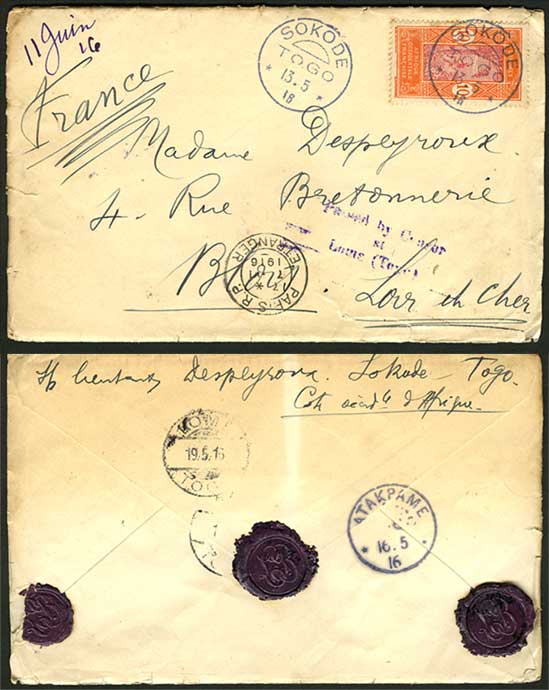 11 Juin
16
SOKODE
TOGO
* 13.5 *
16
SOKODE
13.5
AFRIQUE OCCIDENTALE FRANÇAISE
France
Madame Despeyroux
4 Rue Bretonnerie
Passed by Censor
at
Lome (Togo)
PARIS R.P.
ETRANGER
1916
Loir et Cher
Despeyroux. Sokode - Togo.
Cote occid le d'Afrique.
LOME
19.5.16
TOGO
ATAKPAME
* 16.5 *
16